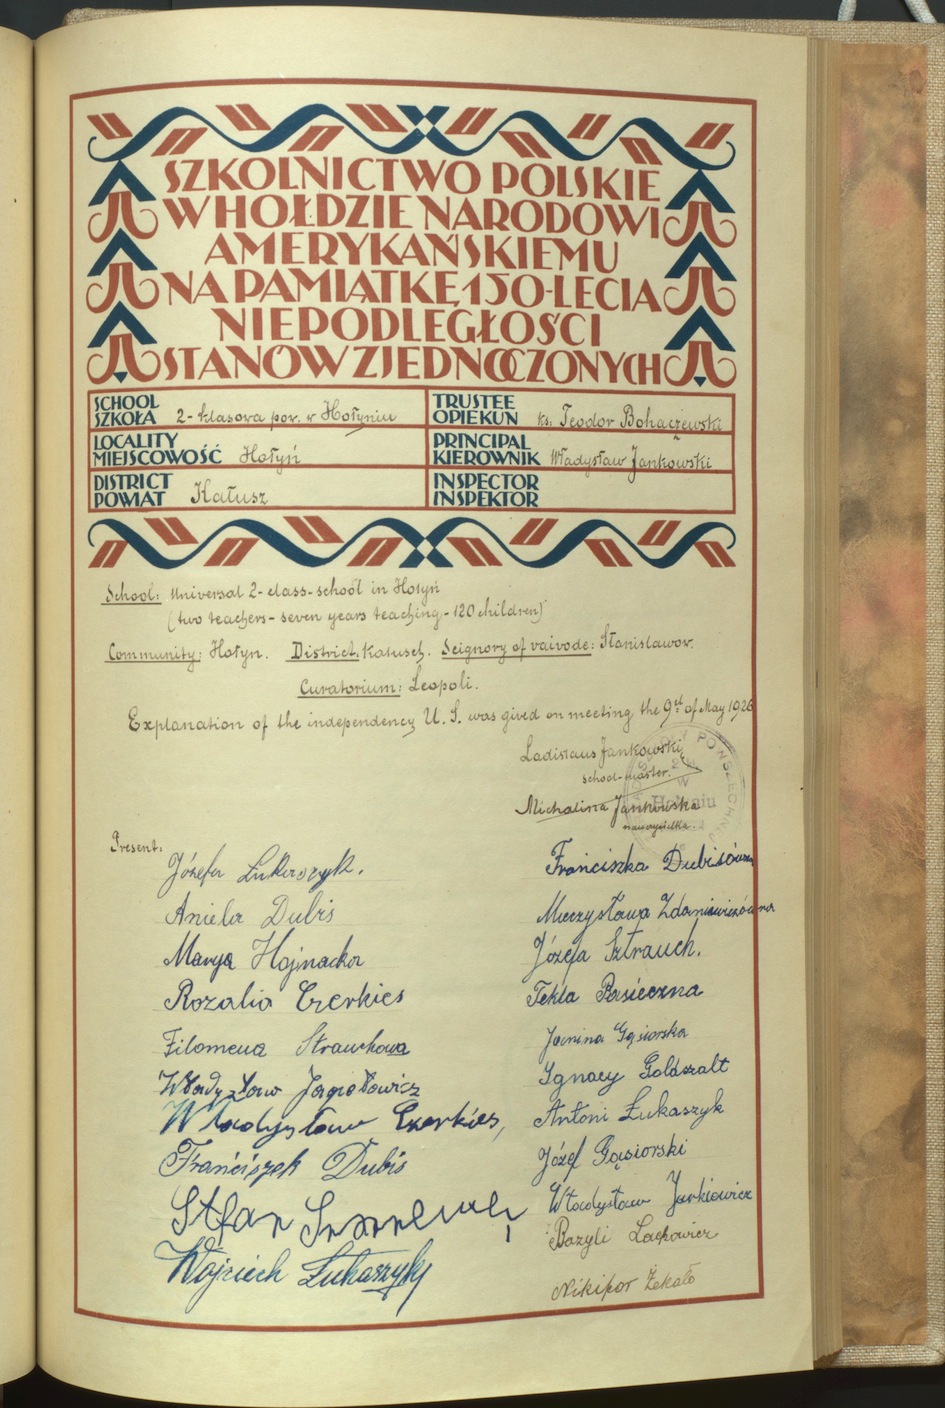 SZKOLNICTWO POLSKIE
W HOŁDZIE NARODOWI
AMERYKAŃSKIEMU
NA PAMIĄTKĘ 150-LECIA
NIEPODLEGŁOŚCI
STANÓW ZJEDNOCZONYCH
SCHOOL
SZKOŁA 2-klasowa pow. w Hołyniu
TRUSTEE
OPIEKUN ks. Teodor Bohaczewski
LOCALITY
MIEJSCOWOŚĆ Hołyń
PRINCIPAL
KIEROWNIK Władysław Jankowski
DISTRICT
POWIAT Kałusz
INSPECTOR
INSPEKTOR
School: Universal 2-class-school in Hołyń
(two teachers - seven years teaching - 120 children)
Community: Hołyn. District: Kałusch. Seignory of vaivode: Stanislawov.
Curatorium: Leopoli.
Explanation of the independency U. S. was gived on meeting the 9st of May 1926
Ladislaus Jankowski
school-master.
Michalina Jankowska
nauczycielka.
Present:
Józefa Łukaszyk.
Aniela Dubis
Marya Hojnacka
Rozalia Czerkies
Filomena Strauchowa
Władysław Jagiełowicz
Władysław Czerkies,
Franciszek Dubis
Stefan
Wojciech Łukaszyk
Franciszka Dubisówna
Mieczysława Zdaniewiczówna
Józefa Sztrauch.
Tekla Pasieczna
Janina Gąsiorska
Ignacy Goldszalt
Antoni Łukaszyk
Józef Gąsiorski
Władysław Jurkiewicz
Bazyli Lachowicz
Nikifor Żekało